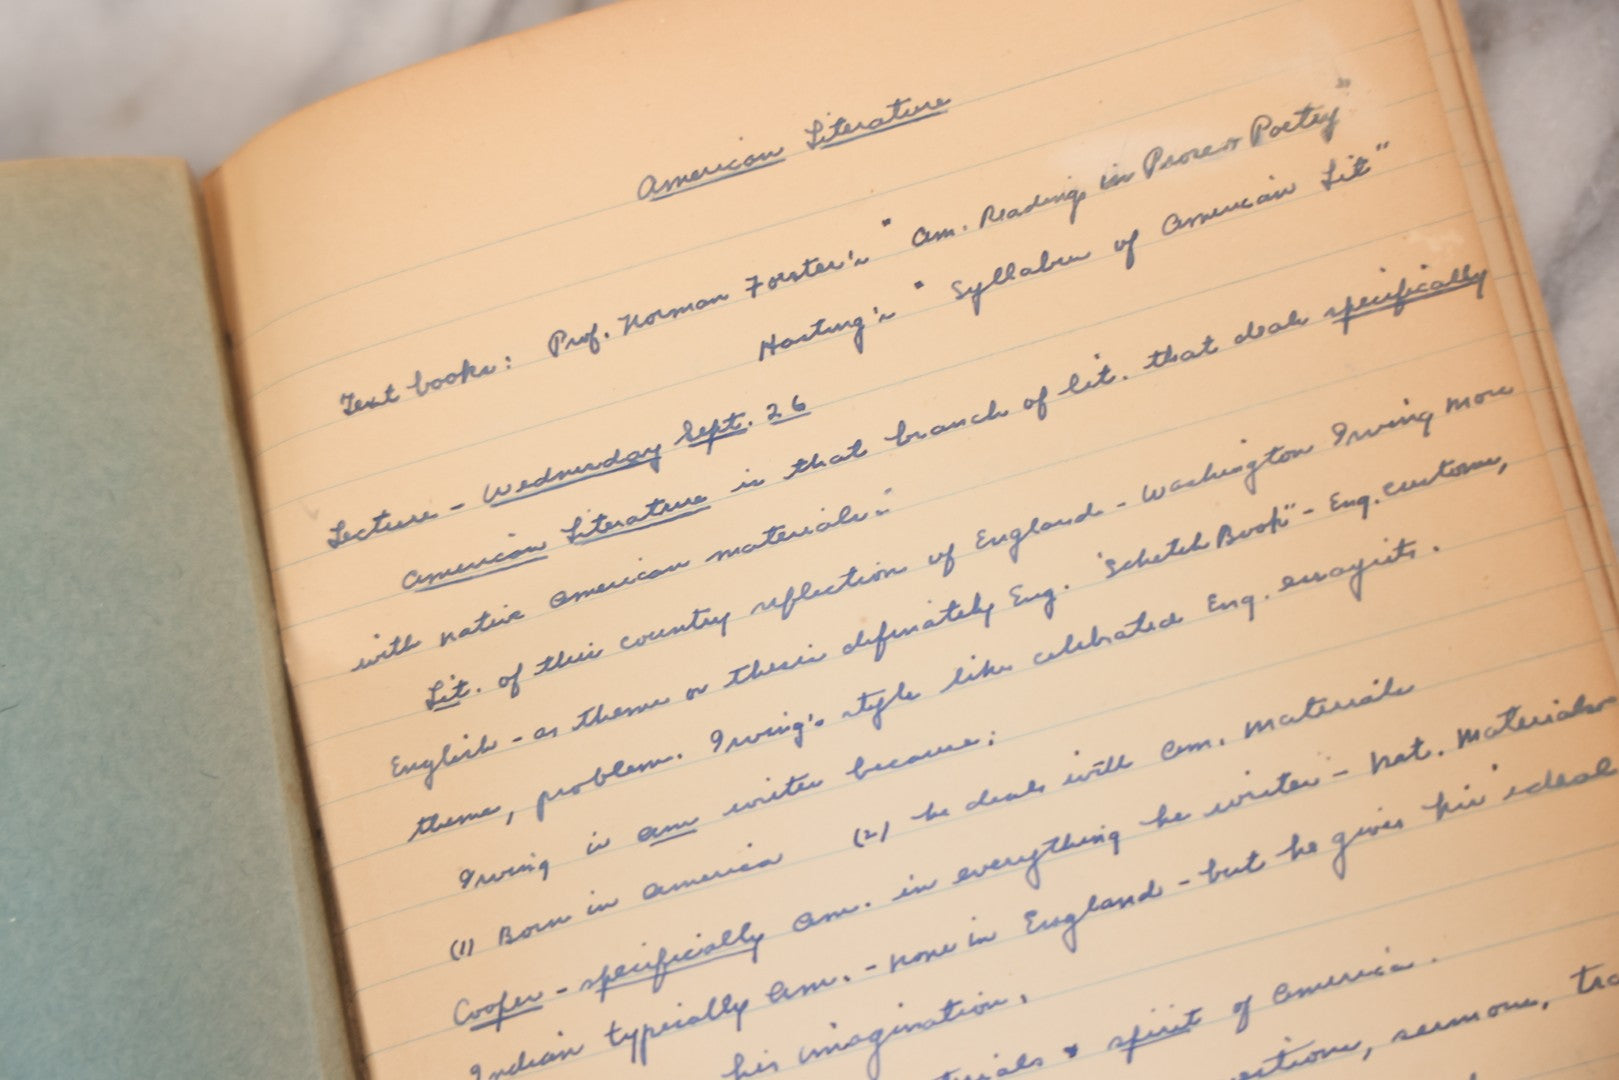 American Literature
Text books: Prof. Norman Forster's "Am. Readings in Prose & Poetry"
Hartwig's "Syllabus of American Lit"
Lecture - Wednesday Sept. 26
American Literature is that branch of lit. that deals specifically
with native American materials."
Lit. of this country reflection of England - Washington Irving more
English - as theme or thesis definately Eng. "Schetch Book" - Eng. customs,
theme, problem. Irving's style like celebrated Eng. essayists.
Irving is am writer because:
(1) Born in America (2) he deals with Am. Materials
Cooper - specificially Am. in everything he writes - Nat. Materials
Indian typically Am. - none in England - but he gives his ideal
his imagination.
& spirit of America.
sermons,